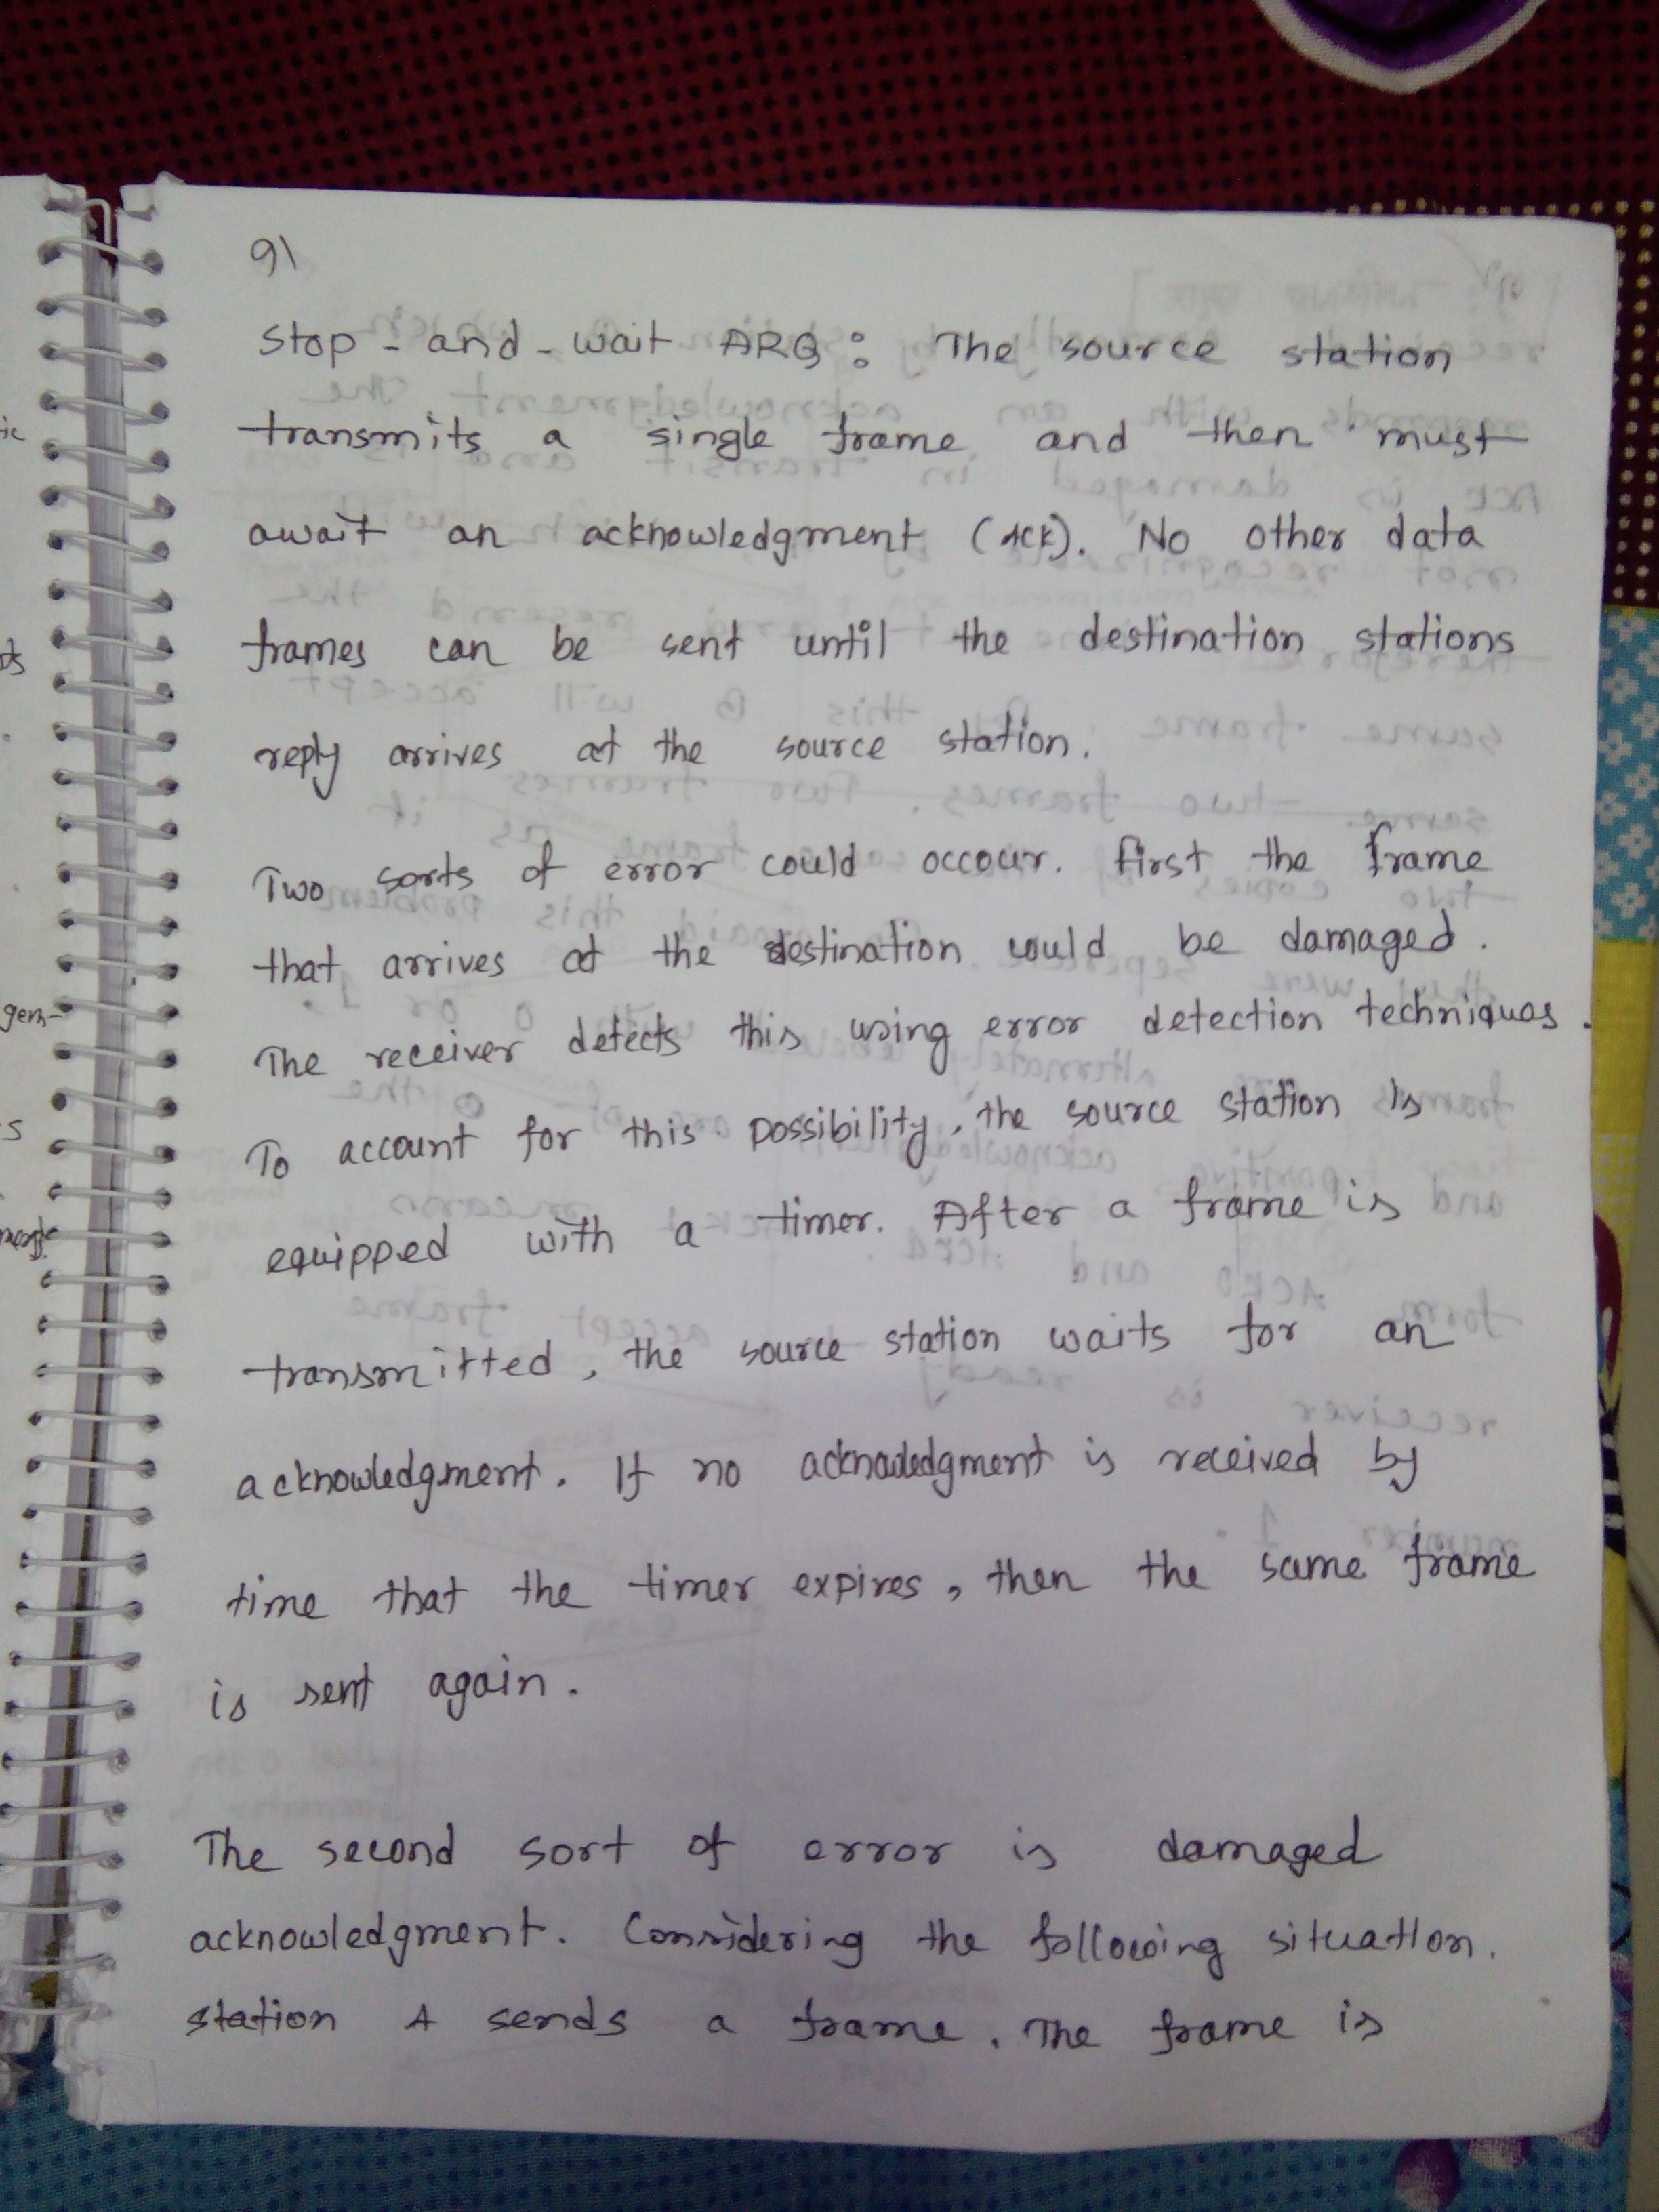 9\
Stop-and-wait ARQ: The source station
transmits a single frame and then must
await an acknowledgment (ACK). No other data
frames can be sent until the destination stations
reply arrives at the source station.
Two sorts of error could occour. first the frame
that arrives at the destination could be damaged.
The receiver detects this using error detection techniques.
To account for this possibility, the source station is
equipped with a timer. After a frame is
transmitted, the source station waits for an
acknowledgment. If no acknowledgment is received by
time that the timer expires, then the same frame
is sent again.
The second sort of error is damaged
acknowledgment. Considering the following situation.
station A sends a frame. The frame is